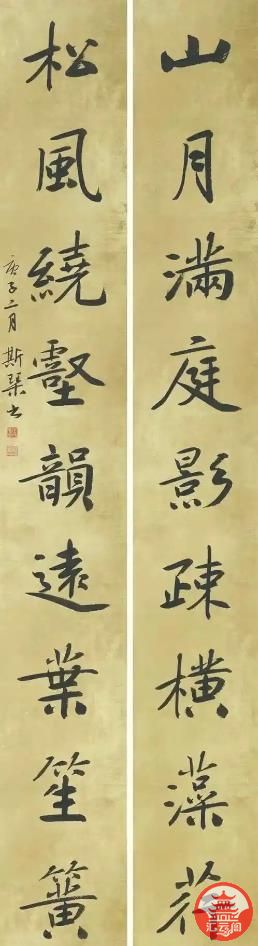 山月滿庭影疎橫藻荇
松風繞壑韻遠葉笙簧
庚子二月 斯琹书
汇云阁